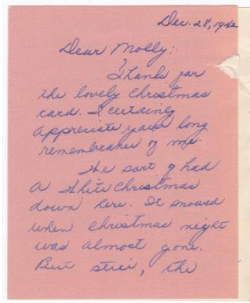 Dec. 28, 19
Dear Molly:
Thanks for
the lovely Christmas
card. I certainly
appreciate your long
remembrance of me.
We sort of had
a White Christmas
down here. It snowed
when Christmas night
was almost gone.
But still, the